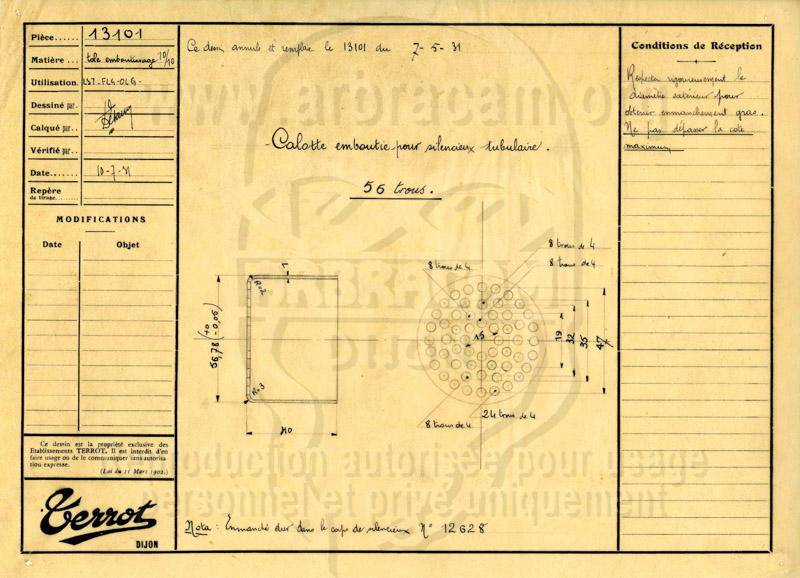 Pièce...... 13101
Matière... tole emboutissage 10/10
Utilisation. LST-FLG-OLG-
Dessiné par.
Calqué par...
Vérifié par...
Date....... 10-7-31
Repère
de tirage.
MODIFICATIONS
Date Objet
Ce dessin est la propriété exclusive des
Etablissements TERROT. Il est interdit d'en
faire usage ou de le communiquer sans autorisa-
tion expresse.
(Loi du 11 Mars 1902.)
Terrot
DIJON
Ce dessin annule et remplace le 13101 du 7-5-31
Calotte emboutie pour silencieux tubulaire.
56 trous.
1
R=2
R=3
56,78 (+0 -0,05)
40
8 trous de 4
8 trous de 4
8 trous de 4
15
19
32
35
47
8 trous de 4
24 trous de 4
Nota : Emmanché dur dans le corps de silencieux N° 12628
Conditions de Réception
Respecter rigoureusement le
diamètre extérieur pour
obtenir emmanchement gras.
Ne pas dépasser la cote
maximum
www.arbracam.org
ARBRACAM
DIJON
Reproduction autorisée pour usage
personnel et privé uniquement